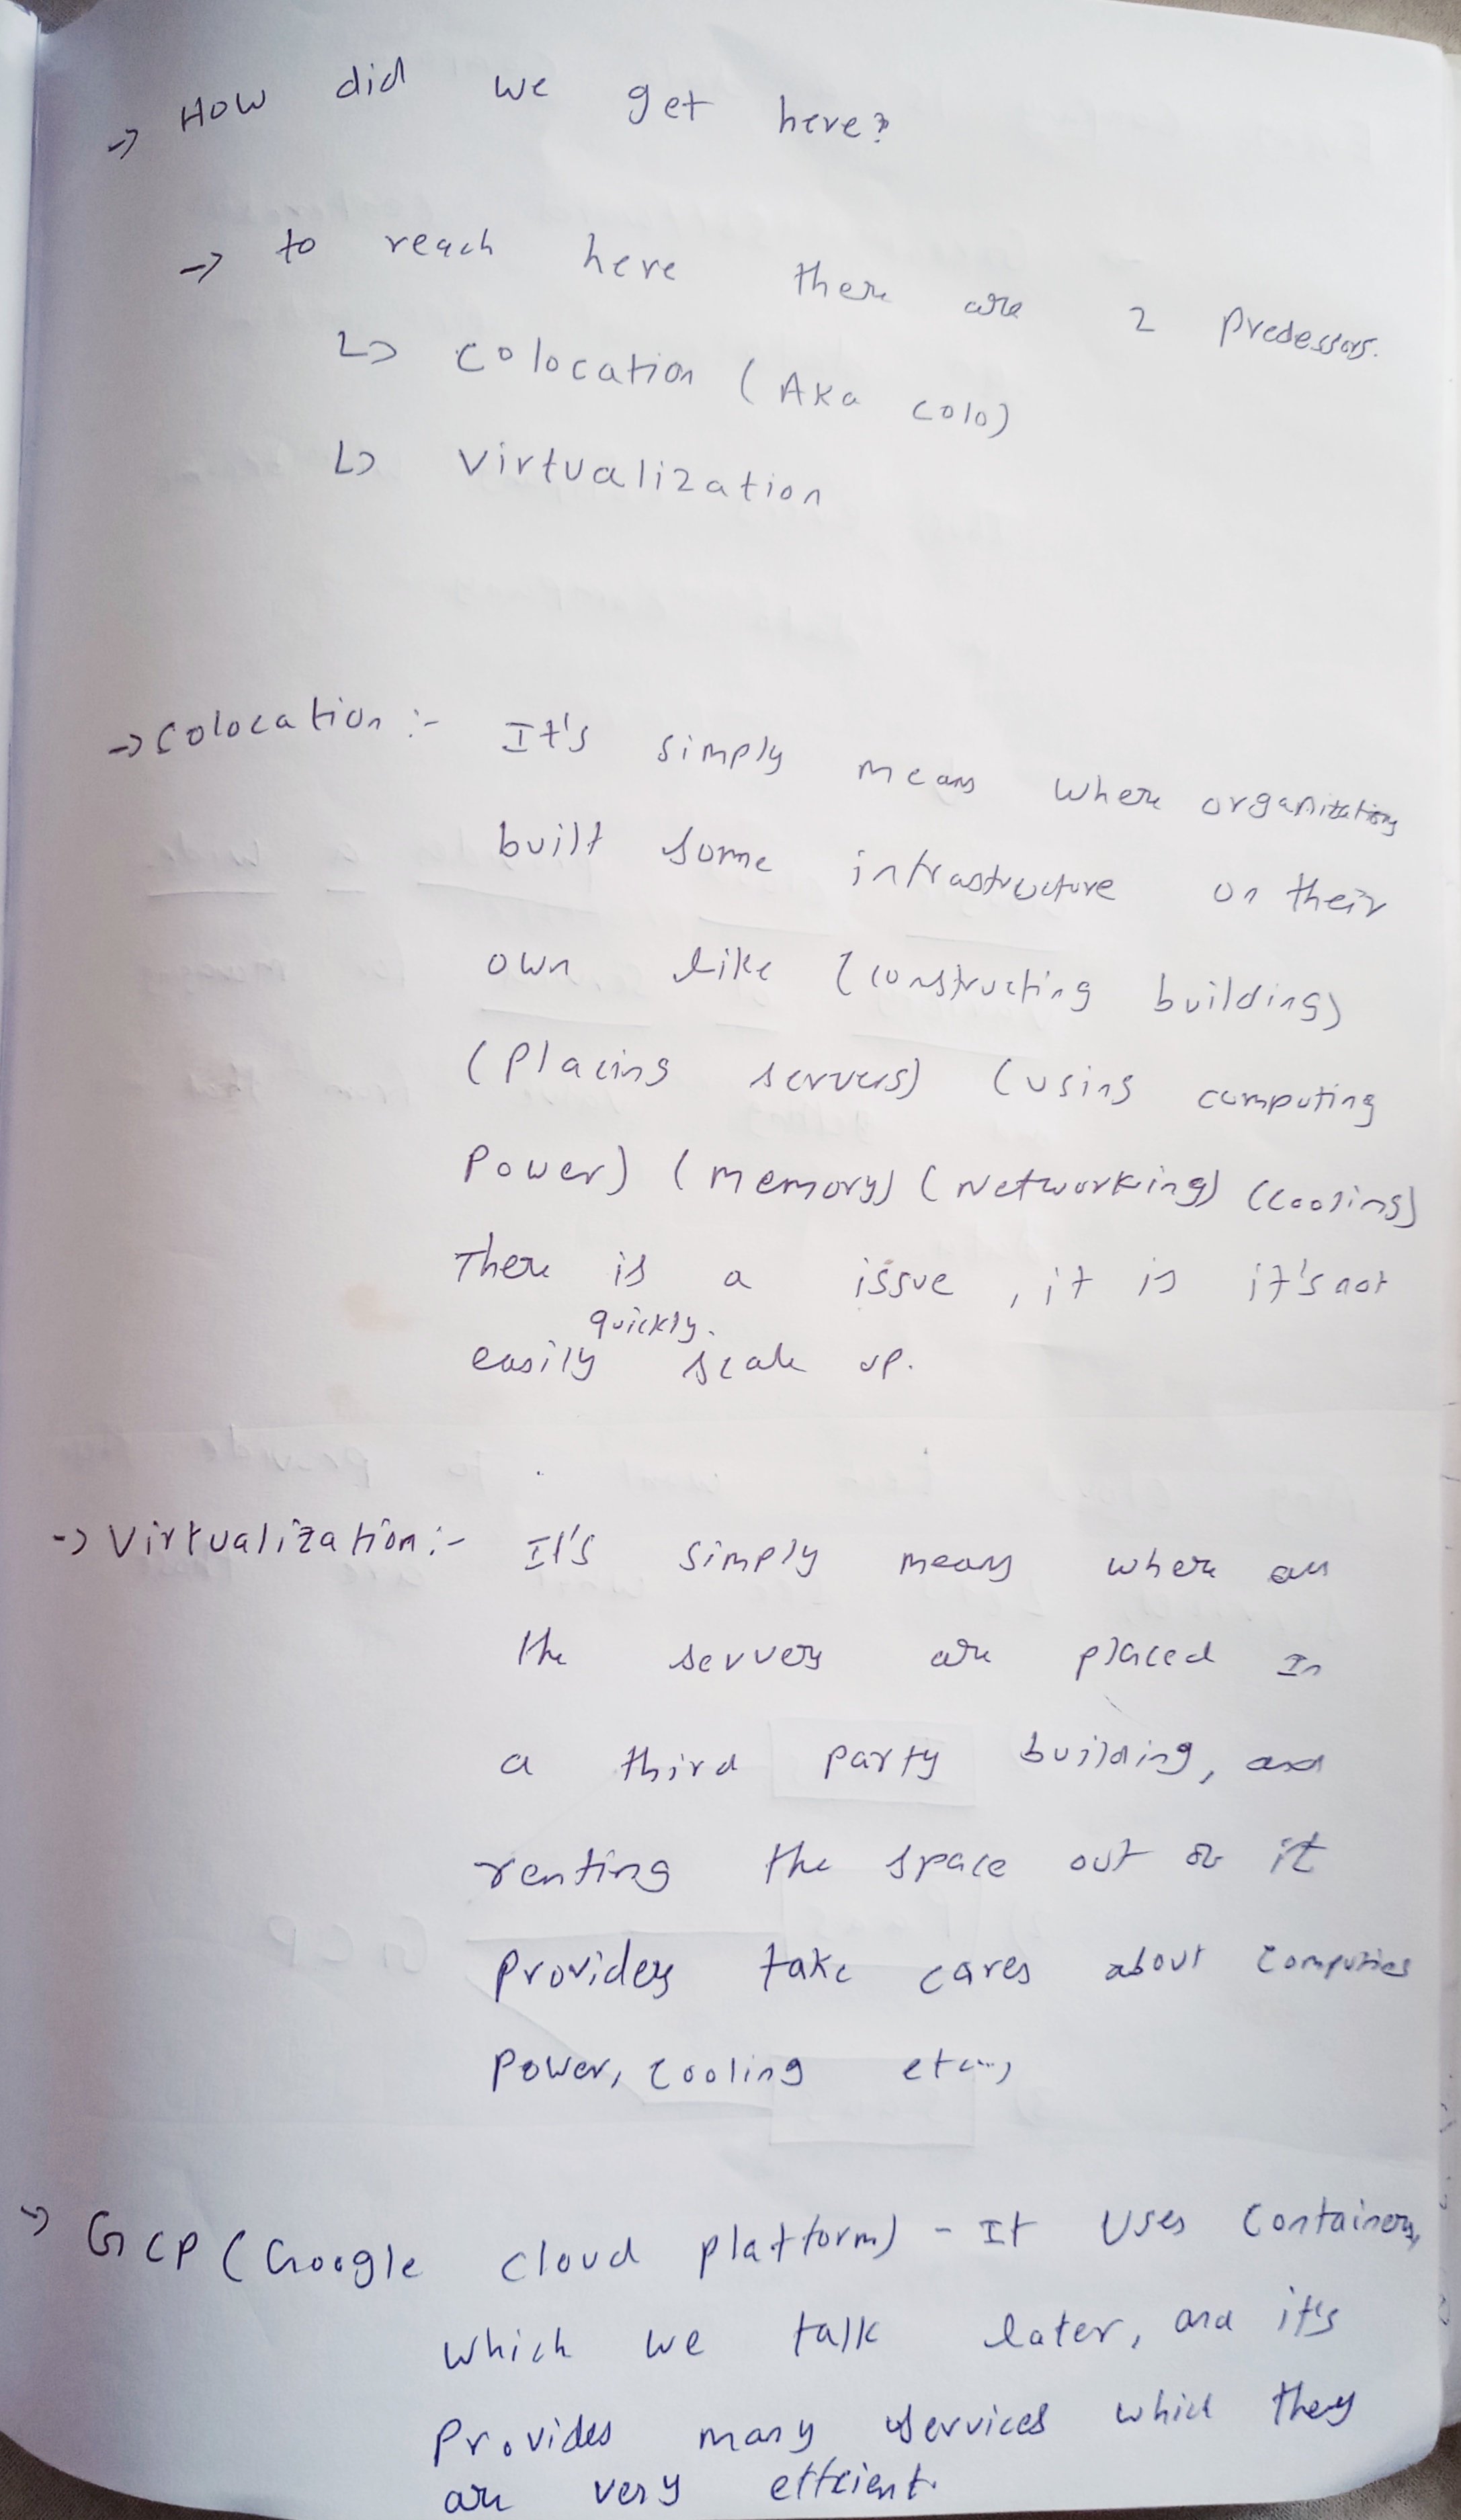 → How did we get here?
→ to reach here there are 2 predessors.
↳ Colocation (Aka colo)
↳ Virtualization
→ Colocation :- It's simply means where organizations
built some infrastructure on their
own like (constructing building)
(Placing servers) (using computing
Power) (memory) (Networking) (cooling)
There is a issue, it is it's not
quickly.
easily scale up.
→ Virtualization :- It's simply means where all
the servers are placed In
a third party building, and
renting the space out of it
Providers take cares about computing
Power, cooling etc...,
→ GCP (Google cloud platform) - It Uses Containers,
which we talk later, and it's
Provides many services which they
are very effcient.